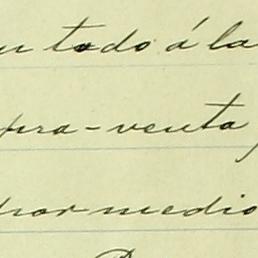 todo á la
pra-venta
por medio